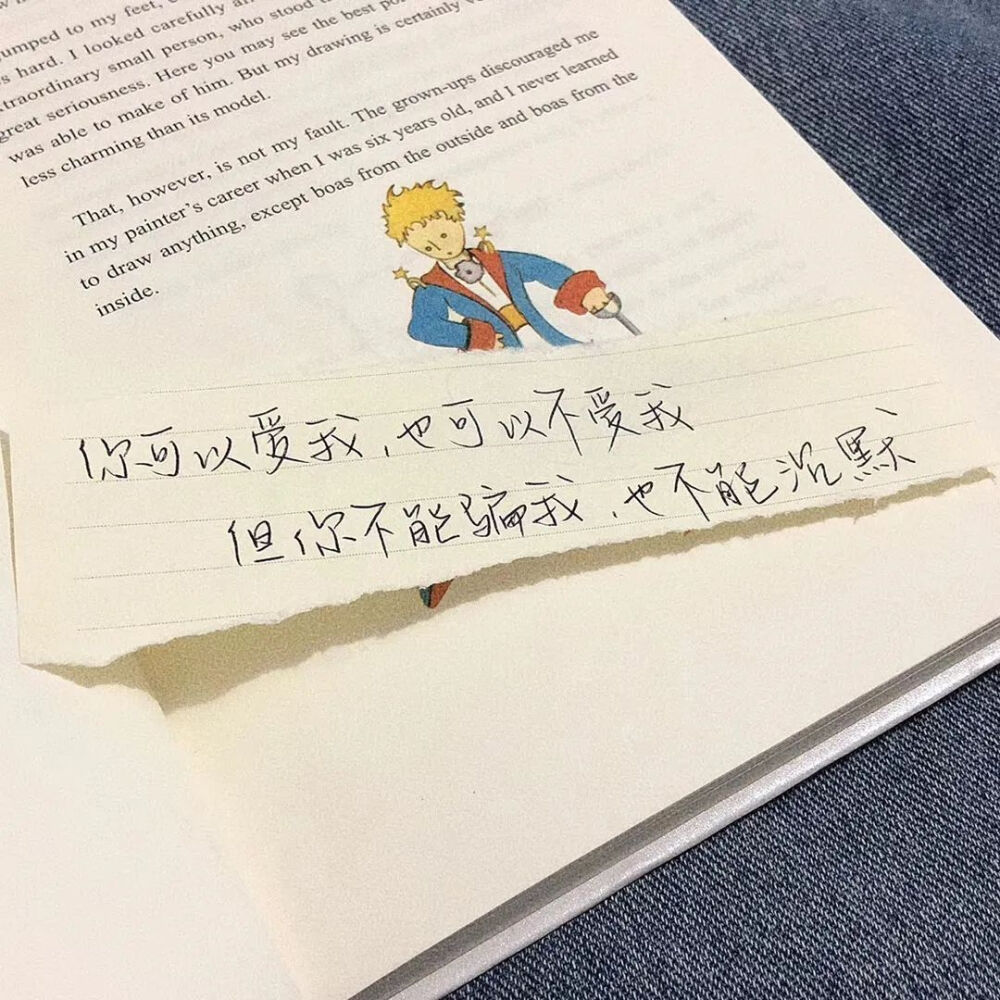 jumped to my feet,
hard. I looked carefully
extraordinary small person, who stood
great seriousness. Here you may see the best
was able to make of him. But my drawing is certainly
less charming than its model.
That, however, is not my fault. The grown-ups discouraged me
in my painter's career when I was six years old, and I never learned
to draw anything, except boas from the outside and boas from the
inside.
你可以爱我,也可以不爱我
但你不能骗我,也不能沉默